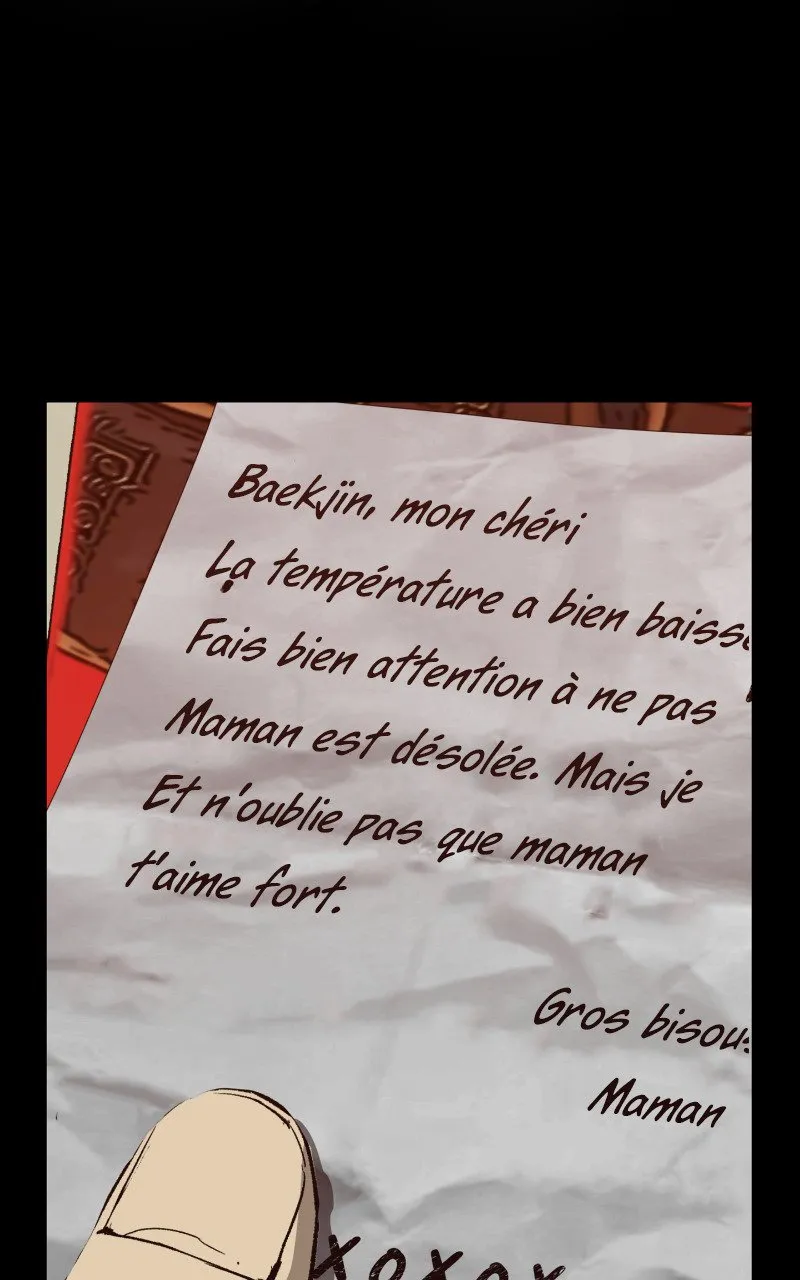 Baekjin, mon chéri
La température a bien baissé
Fais bien attention à ne pas
Maman est désolée. Mais je
Et n'oublie pas que maman
t'aime fort.
Gros bisous
Maman
xoxox